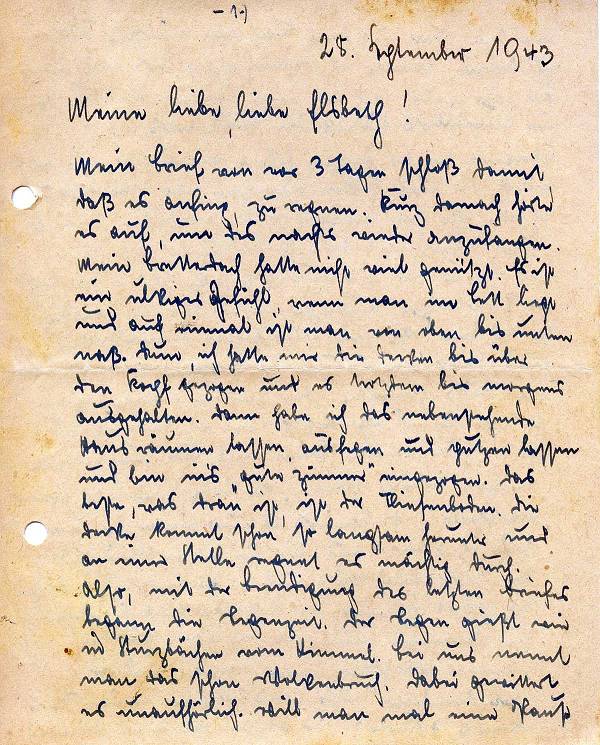 - 1 -)
28. September 1943
Meine liebe, liebe Elsbeth!
Mein Brief von vor 3 Tagen schloß damit,
daß es anfing, zu regnen. Kurz danach hörte
es auf, um des nachts wieder anzufangen.
Mein Bretterdach hatte nicht viel genützt. Es ist
ein ulkiges Gefühl, wenn man im Bett liegt
und auf einmal ist man von oben bis unten
naß. Denn, ich hatte mir die Decken bis über
den Kopf gezogen und es trotzdem bis morgens
ausgehalten. Dann habe ich das nebenstehende
Haus räumen lassen, ausfegen und putzen lassen
und bin ins "gute Zimmer" eingezogen. Das
beste, was dran ist, ist der Fliesenboden. Die
Decke kommt schon so langsam herunter und
an einer Stelle regnet es mächtig durch.
Also, mit der Beendigung des letzten Briefes
begann die Regenzeit. Der Regen gießt wie
in Sturzbächen vom Himmel. Bei uns nennt
man das schon Wolkenbruch. Dabei gewittert
es unaufhörlich. Will man mal eine